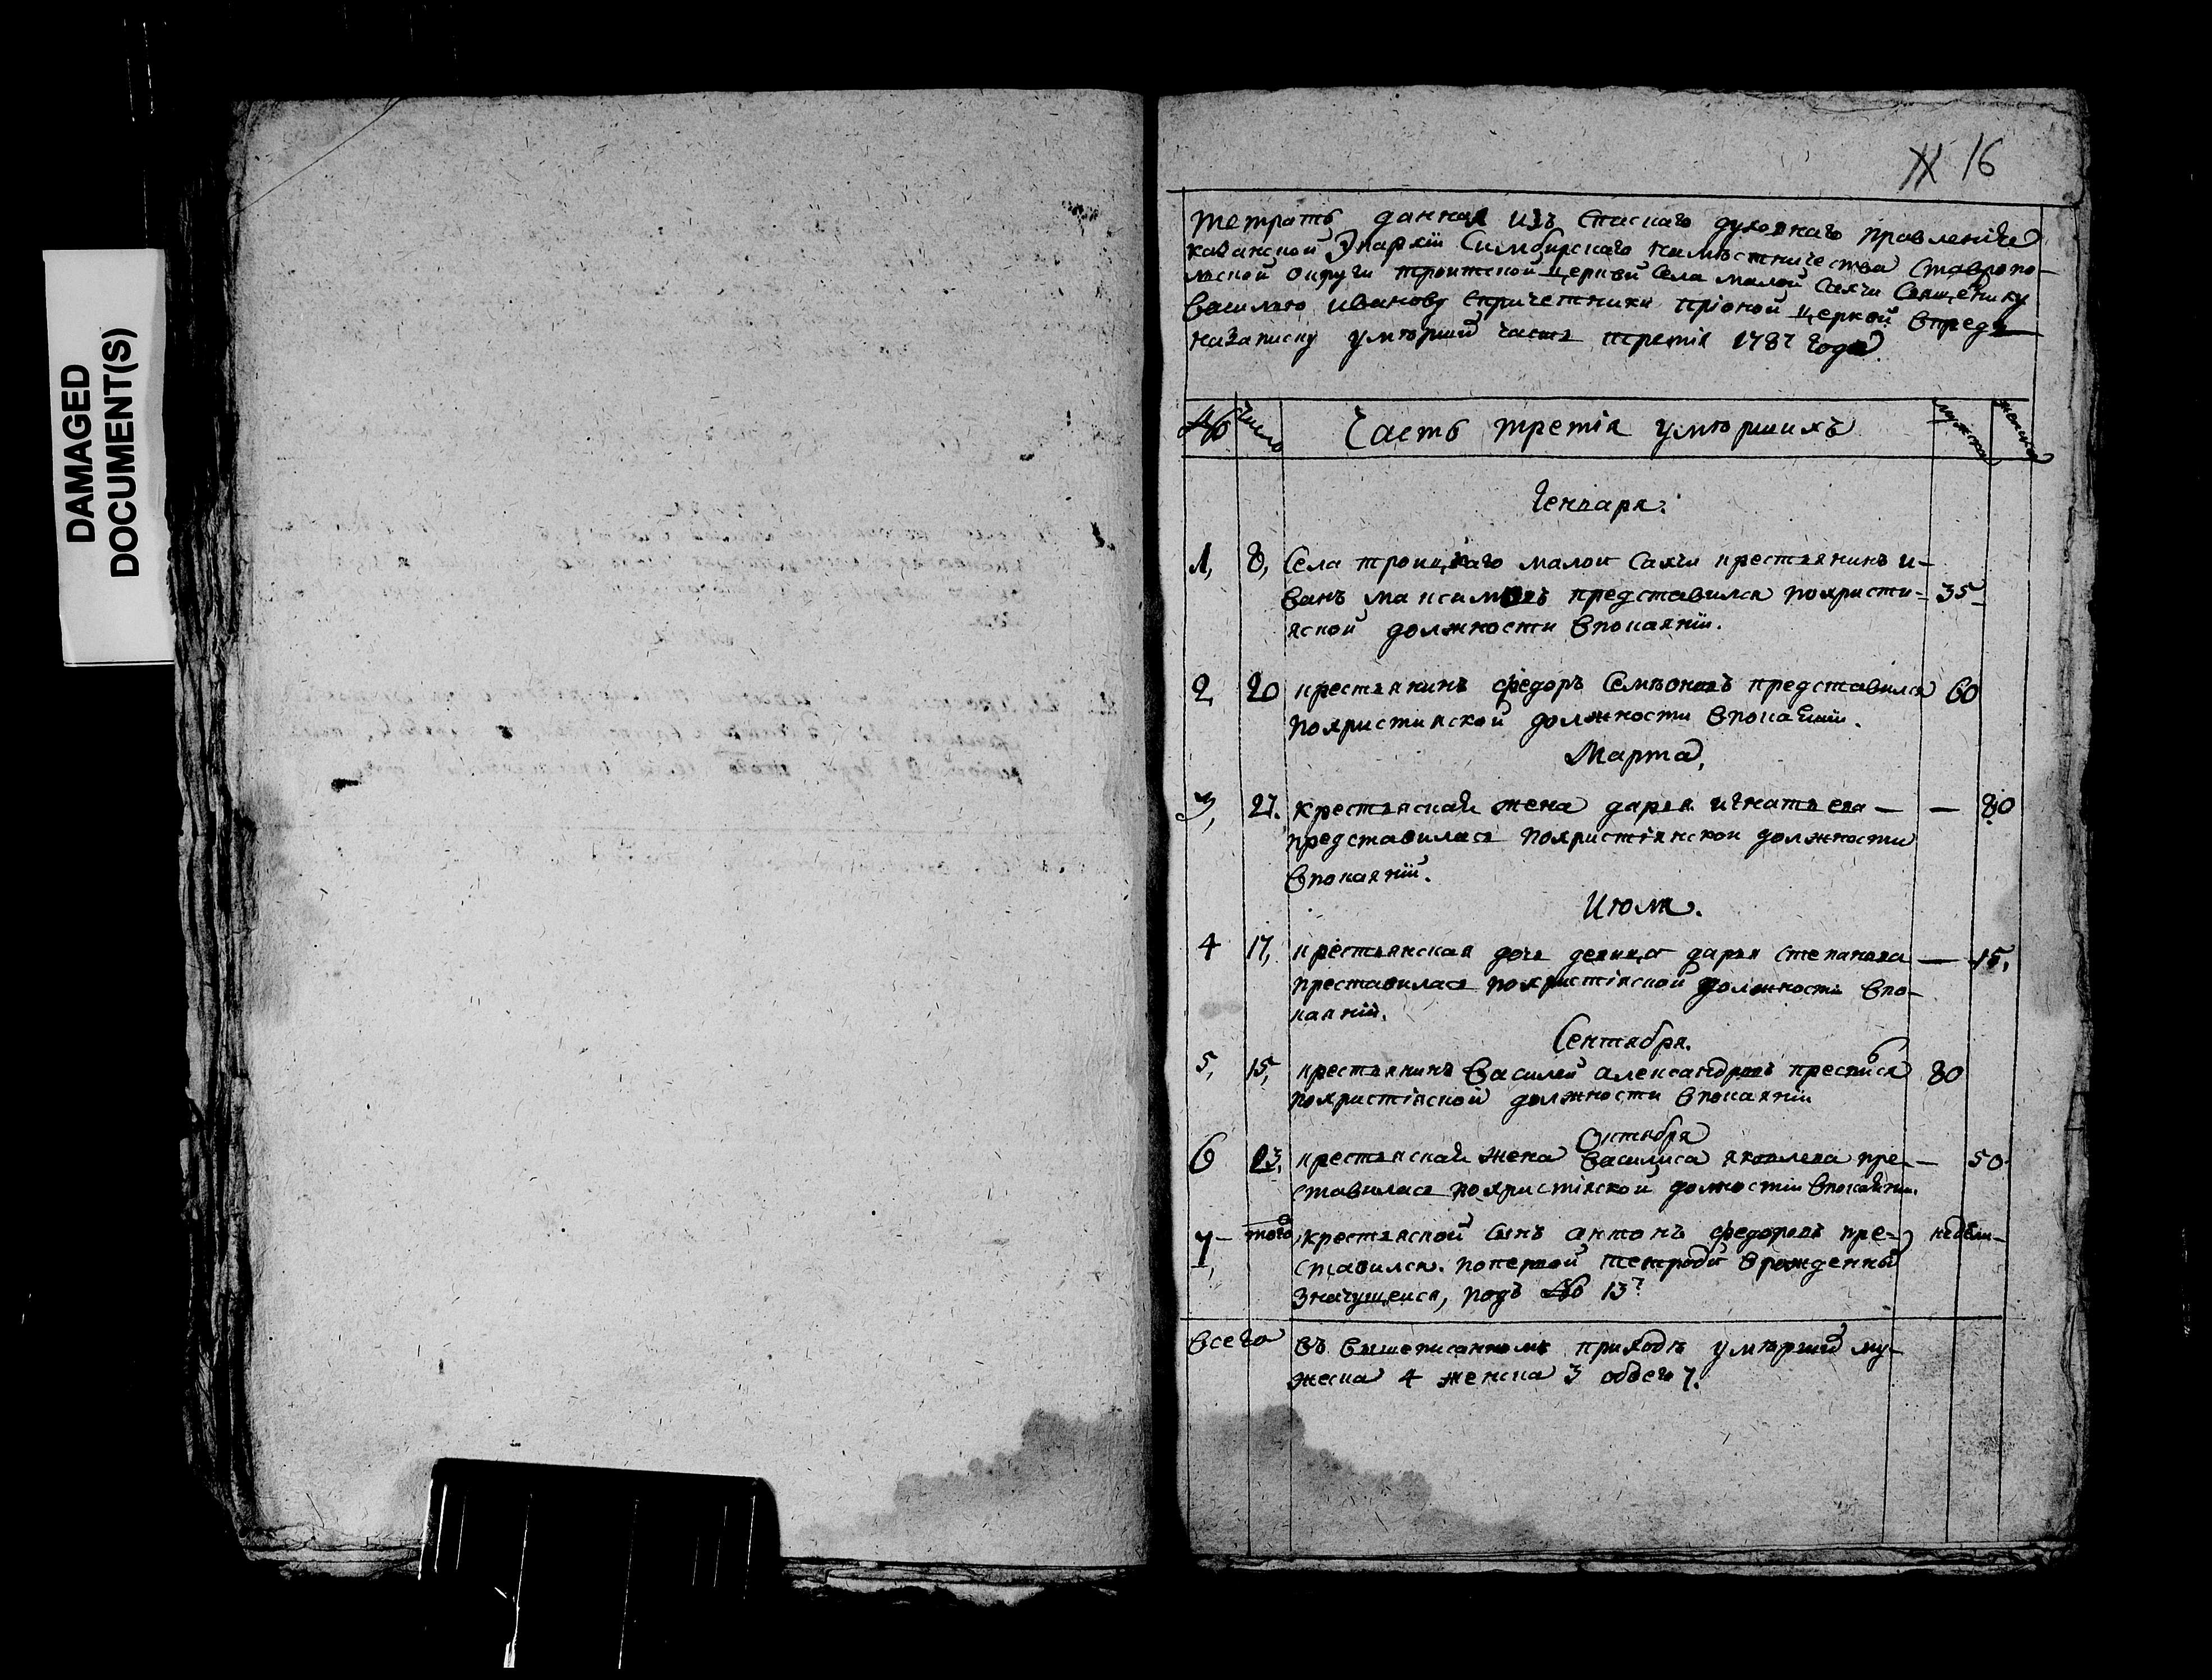 DAMAGED
DOCUMENT(S)
16
тетрать данная изъ спаскаго духовнаго правленiя
казанской Эпархiи Симбирскаго намѣстничества Ставропо-
лской округи троитской церкви Села малой Сахчи Священику
Василью иванову спричетники прионой церкви впредь
назаписку умѣршихъ часть третiя 1787 года
№ число Часть третiя умѣршихъ мужска женска
Генваря.
1, 8, Села троицкаго малои Сахчи крестьянинъ и-
ванъ максимовъ представился похристи- 35
яской должности впокаянiи.
2, 20 крестьянинъ федоръ Семѣоновъ представился 60
похристияской должности впокаянiи.
Марта,
3, 27. крестьяская жена дарья игнатьева — — 80
представилась похристiянскои должности
впокаянiи.
Июля.
4 17, крестьянская дочь девица дарья степанова — 15,
преставилась похристiяской должности впо-
каянiи.
Сентября.
5, 15, крестьянинъ василей александровъ преставися 80
похристiяской должности впокаянiи
Октября
6 23, крестьяская жена василиса яковлева пре- — 50
ставилась похристiяской должности впокаянии.
7, того крестьяской сынъ антонъ федоровъ пре- недѣли-
ставился. попервой тетради орожденныхъ
значущемся, подъ № 13
всего въ вышеписанномъ приходѣ умѣршихъ му-
жеска 4 женска 3 обоего 7.